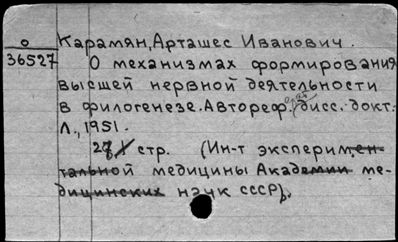 О
36527
Карамян, Арташес Иванович.
О механизмах формирования
высшей нервной деятельности
в филогенезе. Автореф. дисс. докт.
Л., 1951.
стр. (Ин-т эксперимен-
тальной медицины Академии ме-
дицинских наук СССР).